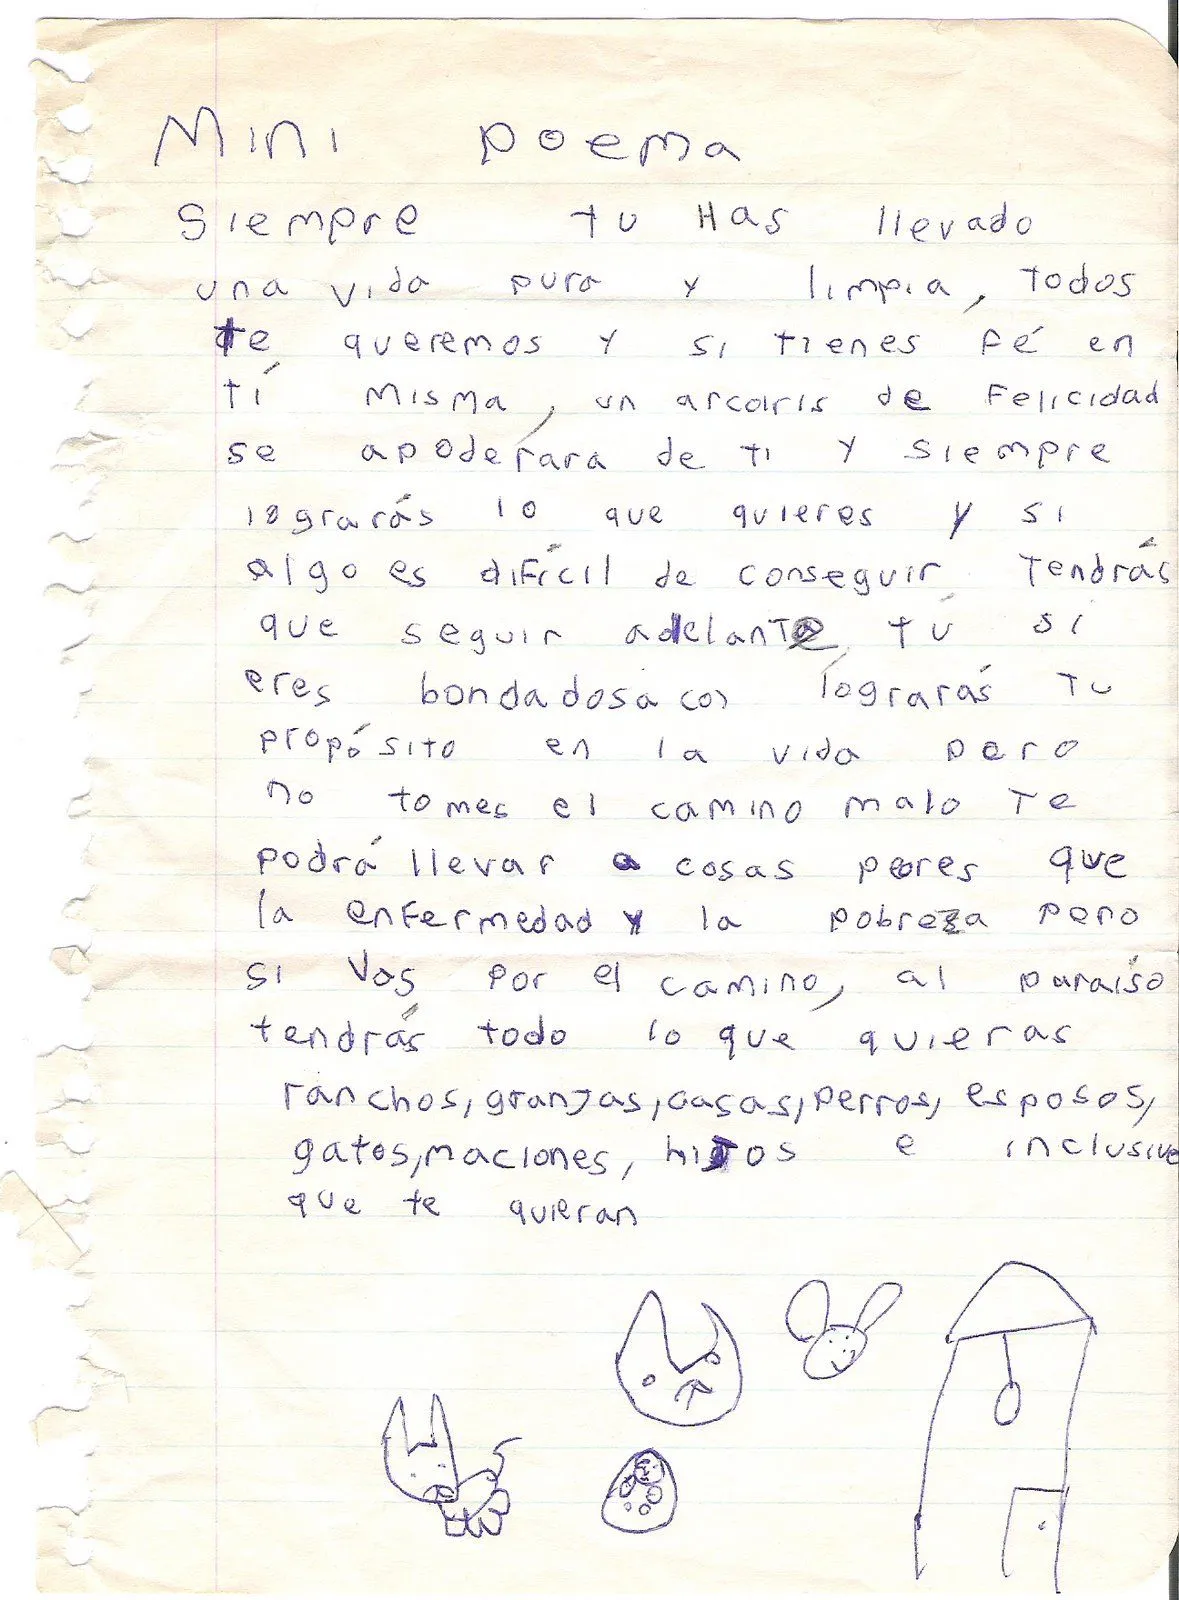 Mini poema
Siempre tu Has llevado
una vida pura y limpia, Todos
te queremos y si tienes fé en
tí misma, un arcoiris de felicidad
se apoderara de ti y siempre
lograrás lo que quieres y si
algo es difícil de conseguir Tendrás
que seguir adelante, tú sí
eres bondadosa con lograrás Tu
propósito en la vida pero
no tomes el camino malo Te
podrá llevar a cosas peores que
la enfermedad y la pobreza pero
si Vas por el camino, al paraíso
tendrás todo lo que quieras
ranchos, granjas, casas, perros, esposos,
gatos, maciones, hijos e inclusive
que te quieran